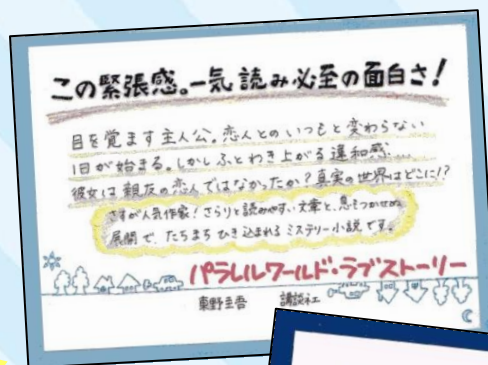 この緊張感。一気読み必至の面白さ!
目を覚ます主人公。恋人とのいつもと変わらない
1日が始まる。しかしふとわき上がる違和感…
彼女は親友の恋人ではなかったか?真実の世界はどこに!?
さすが人気作家!さらりと読みやすい文章と、息もつかせぬ
展開で、たちまちひき込まれるミステリー小説です。
パラレルワールド・ラブストーリー
東野圭吾 講談社